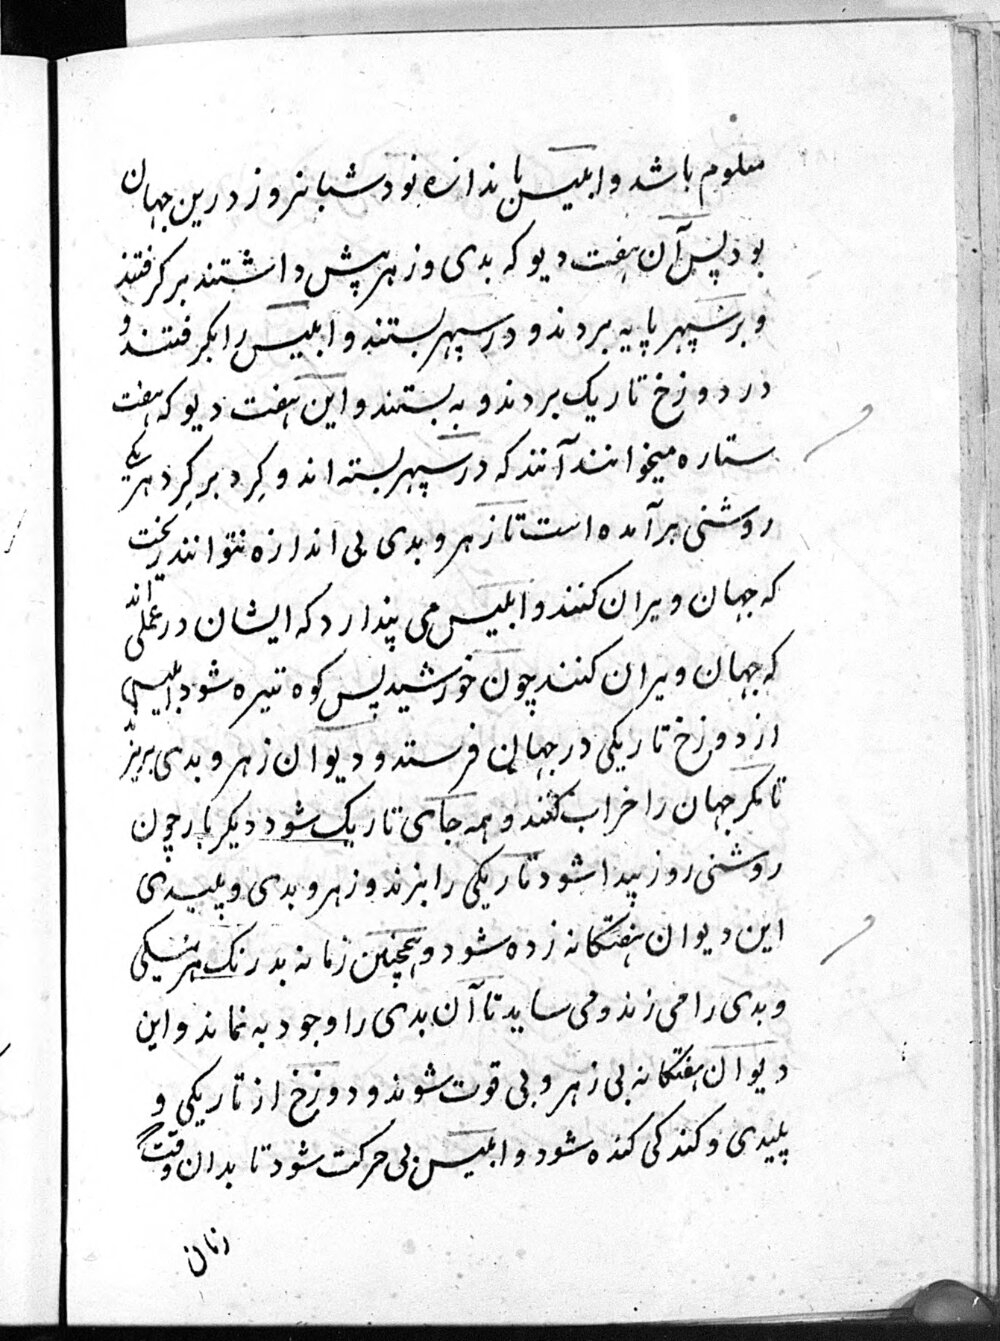 معلوم باشد و ابلیس باندازه نود شبانروز درین جهان
بود پس آن هفت دیو که بدی و زهر پیش داشتند برکرفتند
و بر سپهر پایه بردند و در سپهر بستند و ابلیس را بکرفتند و
در دوزخ تاریک بردند و به بستند و این هفت دیو که هفت
ستاره میخوانند آنند که در سپهر بسته اند و کرد بر کرد هر یکی
روشنی بر آمده است تا زهر و بدی بی اندازه نتوانند ریخت
که جهان ویران کنند و ابلیس می پندارد که ایشان در عملی اند
که جهان ویران کنند چون خورشید پس کوه تیره شود ابلیس
از دوزخ تاریکی در جهان فرستد و دیوان زهر و بدی بریزند
تا مکر جهان را خراب کنند و همه جای تاریک شود دیکر بار چون
روشنی روز پیدا شود تاریکی را بزند و زهر و بدی و پلیدی
این دیوان هفتکانه زده شود و همچنین زمانه بدرنک هر نیکی
و بدی را می زند و می ساید تا آن بدی را وجود به نماند و این
دیوان هفتکانه بی زهر و بی قوت شوند و دوزخ از تاریکی و
پلیدی و کندکی کنده شود و ابلیس بی حرکت شود تا بدان وقت